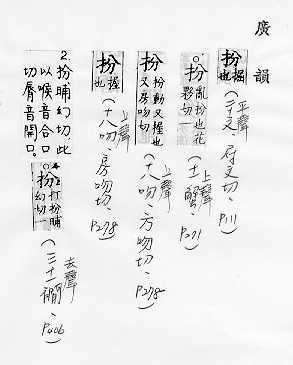 廣韻
扮 握也 (平聲 二十文、府文切、P111)
扮 亂扮也花夥切一 (上聲 十二蟹、P271)
扮 扮動又握也又房吻切 (上聲 十八吻、方吻切、P278)
扮 握也 (上聲 十八吻、房吻切、P278)
2. 扮晡幻切此以喉音合口切脣音開口。
扮 打扮晡幻切一 (去聲 三十一襇、P406)